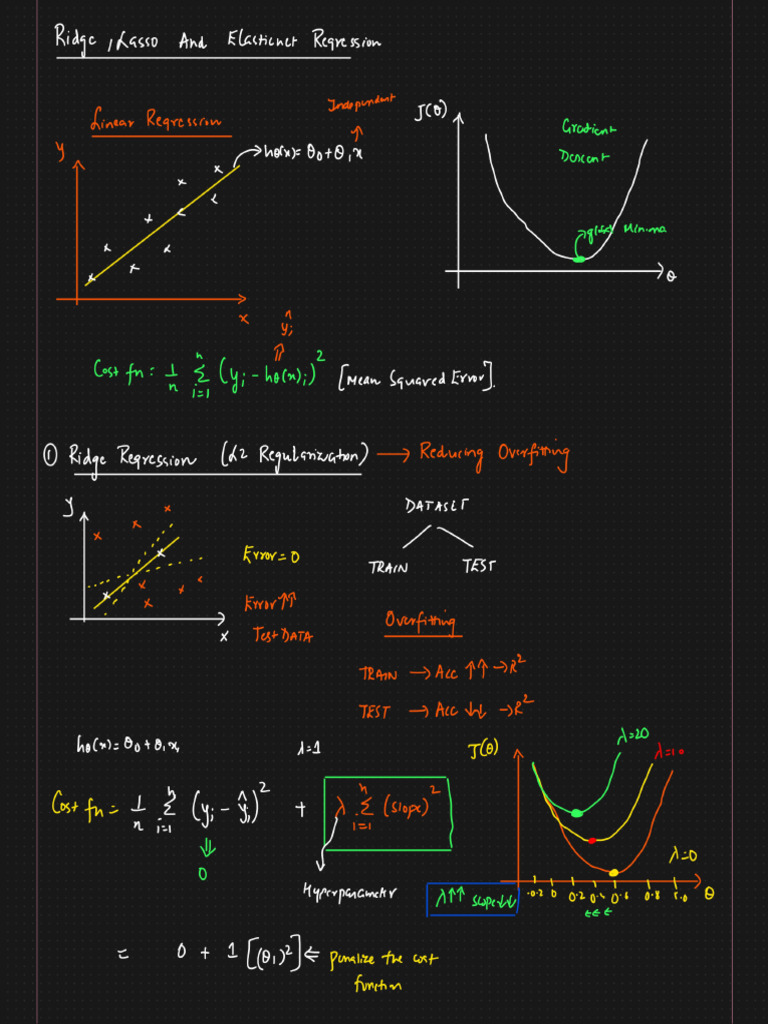 Ridge, Lasso And Elasticnet Regression
Linear Regression
Independent
y
hθ(x) = θ0 + θ1x
x
J(θ)
Gradient
Descent
Minima
θ
ŷi
Cost fn = 1/n Σ_{i=1}^{n} (yi - hθ(x)i)² [Mean Squared Error].
① Ridge Regression (L2 Regularization) → Reducing Overfitting
y
x
Error = 0
Error ↑↑
Test DATA
DATASET
TRAIN TEST
Overfitting
TRAIN → Acc ↑↑ → R²
TEST → Acc ↓↓ → R²
hθ(x) = θ0 + θ1x
λ=1
Cost fn = 1/n Σ_{i=1}^{n} (yi - ŷi)² + λ Σ_{i=1}^{n} (slope)²
⇓
0
Hyperparameter
J(θ)
λ=20
λ=10
λ=0
-0.2 0 0.2 0.4 0.6 0.8 1.0 θ
←←←
λ↑↑ slope↓↓
= 0 + 1 [(θ1)²] ⇐ penalize the cost
function